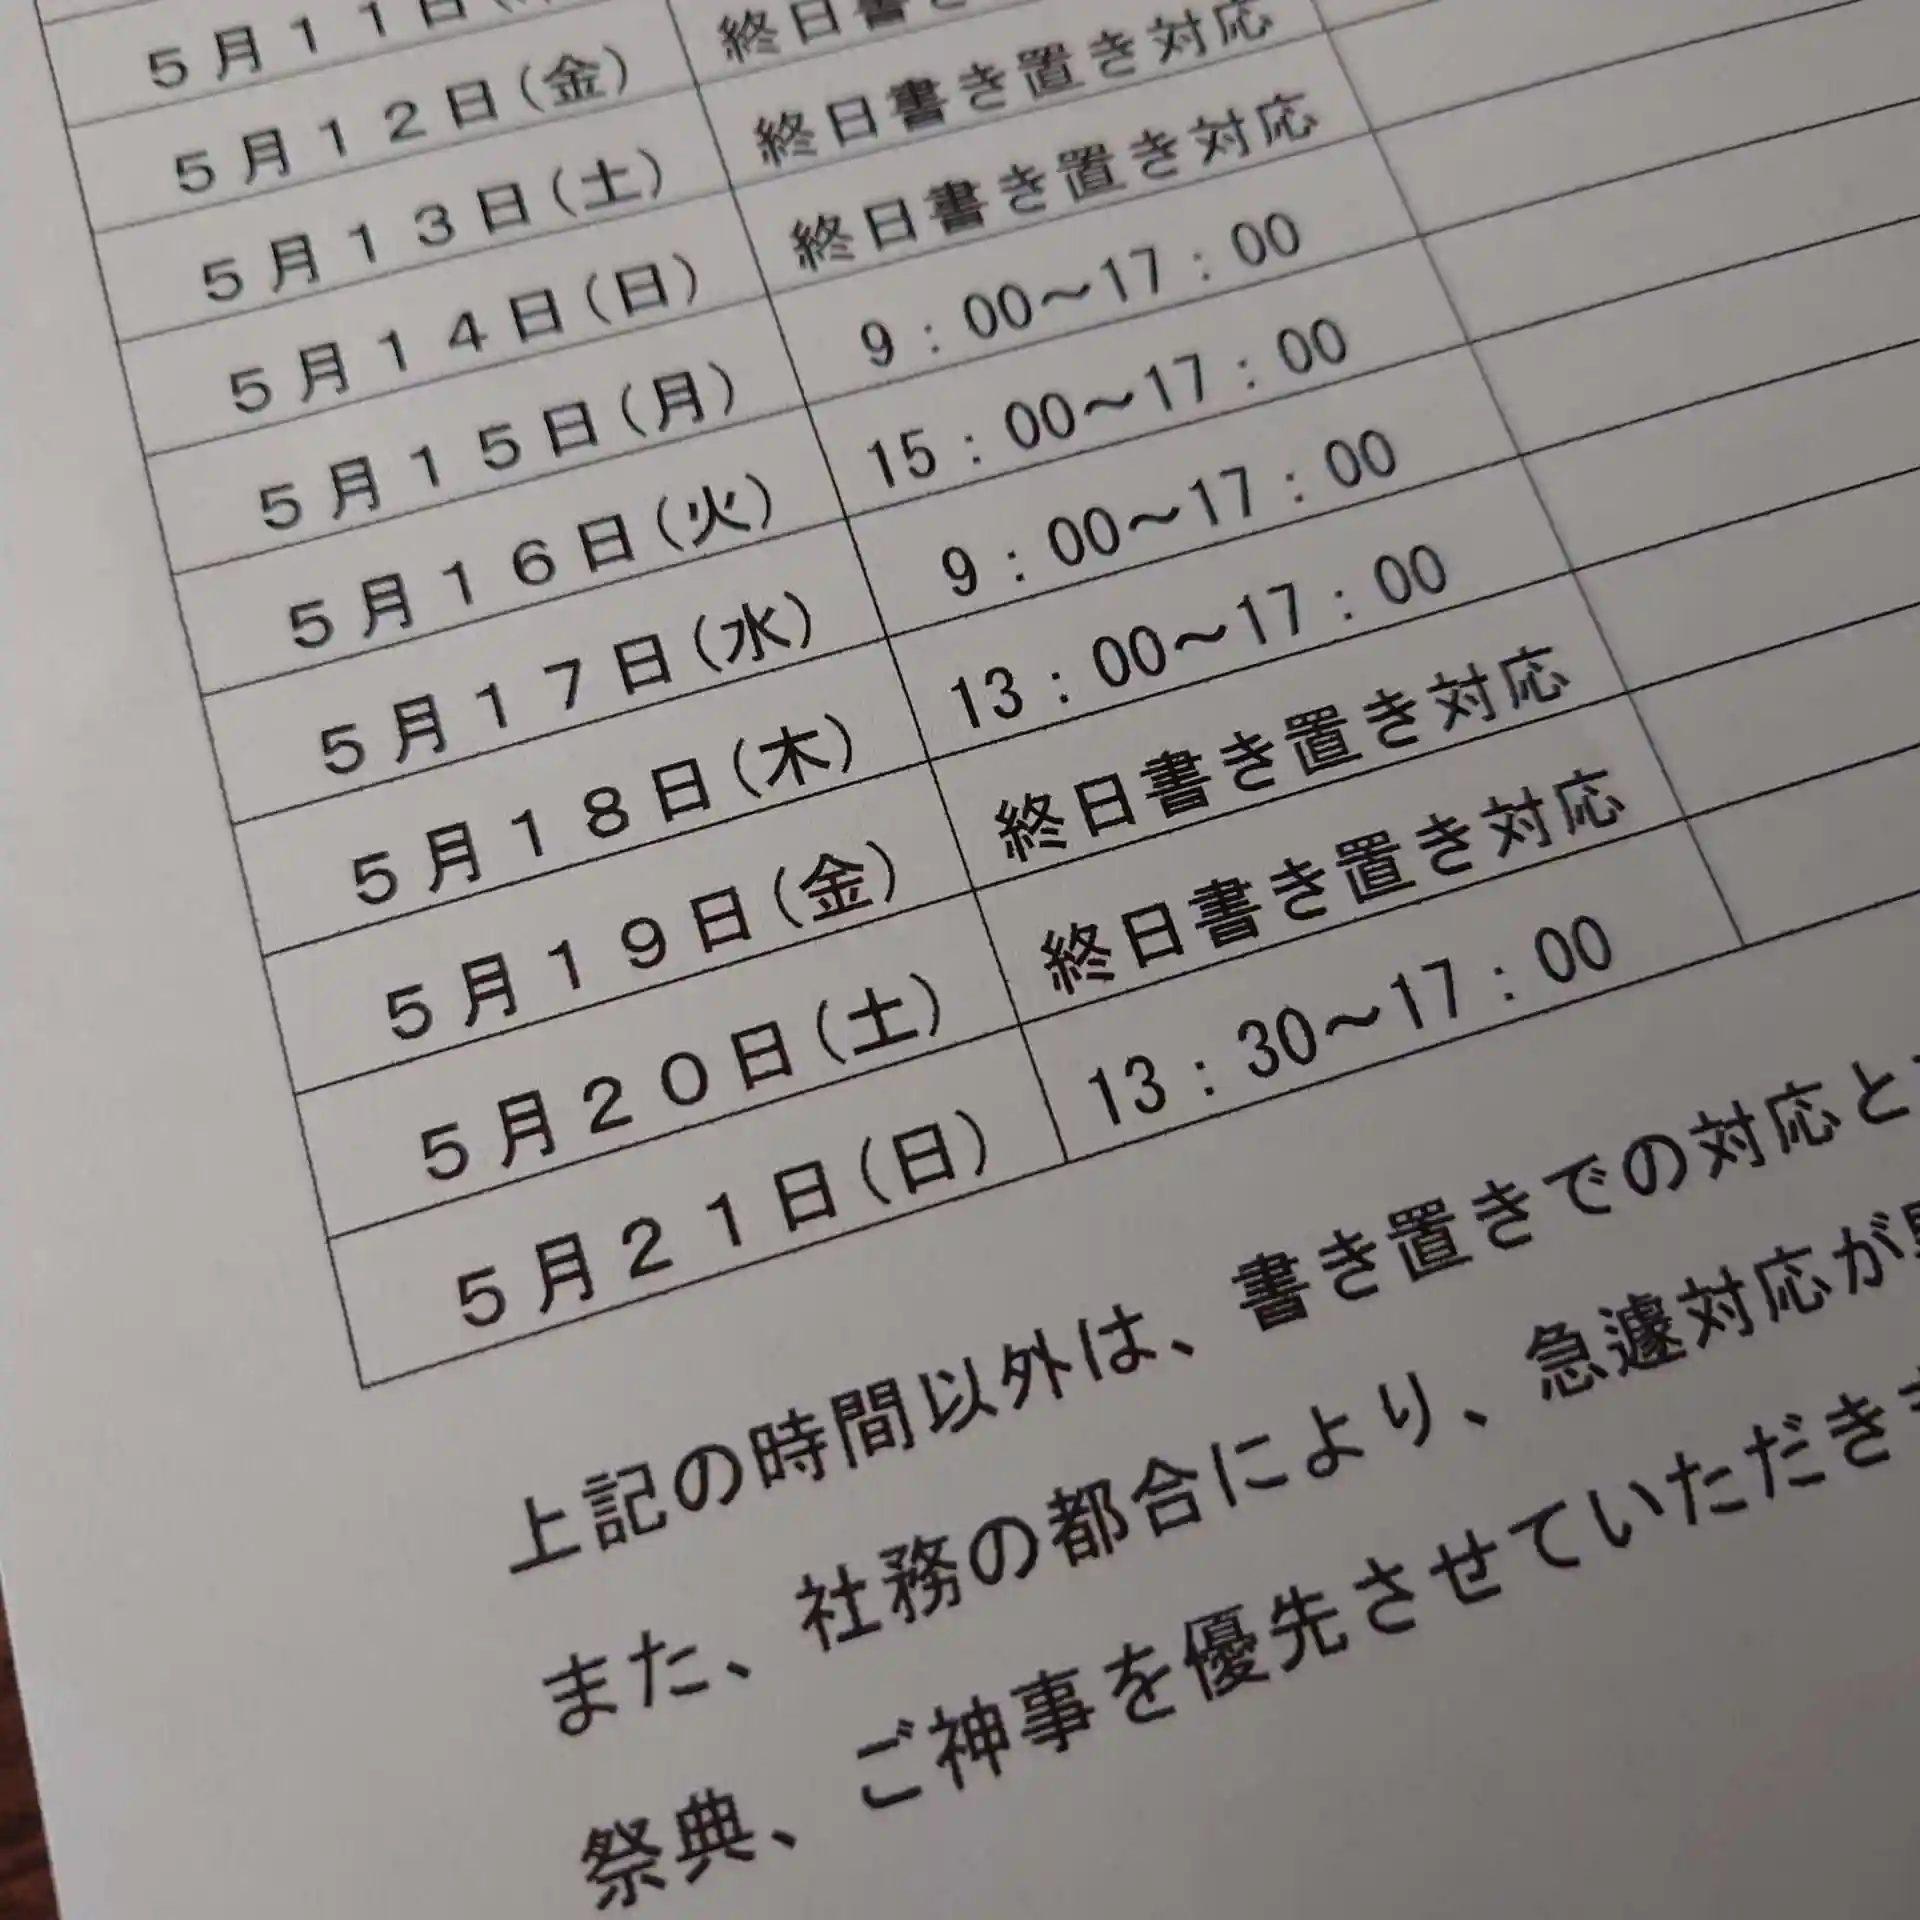 5月11日
5月12日(金) 終日書き
5月13日(土) 終日書き置き対応
5月14日(日) 終日書き置き対応
5月15日(月) 9:00～17:00
5月16日(火) 15:00～17:00
5月17日(水) 9:00～17:00
5月18日(木) 13:00～17:00
5月19日(金) 終日書き置き対応
5月20日(土) 終日書き置き対応
5月21日(日) 13:30～17:00
上記の時間以外は、書き置きでの対応と
また、社務の都合により、急遽対応が
祭典、ご神事を優先させていただき